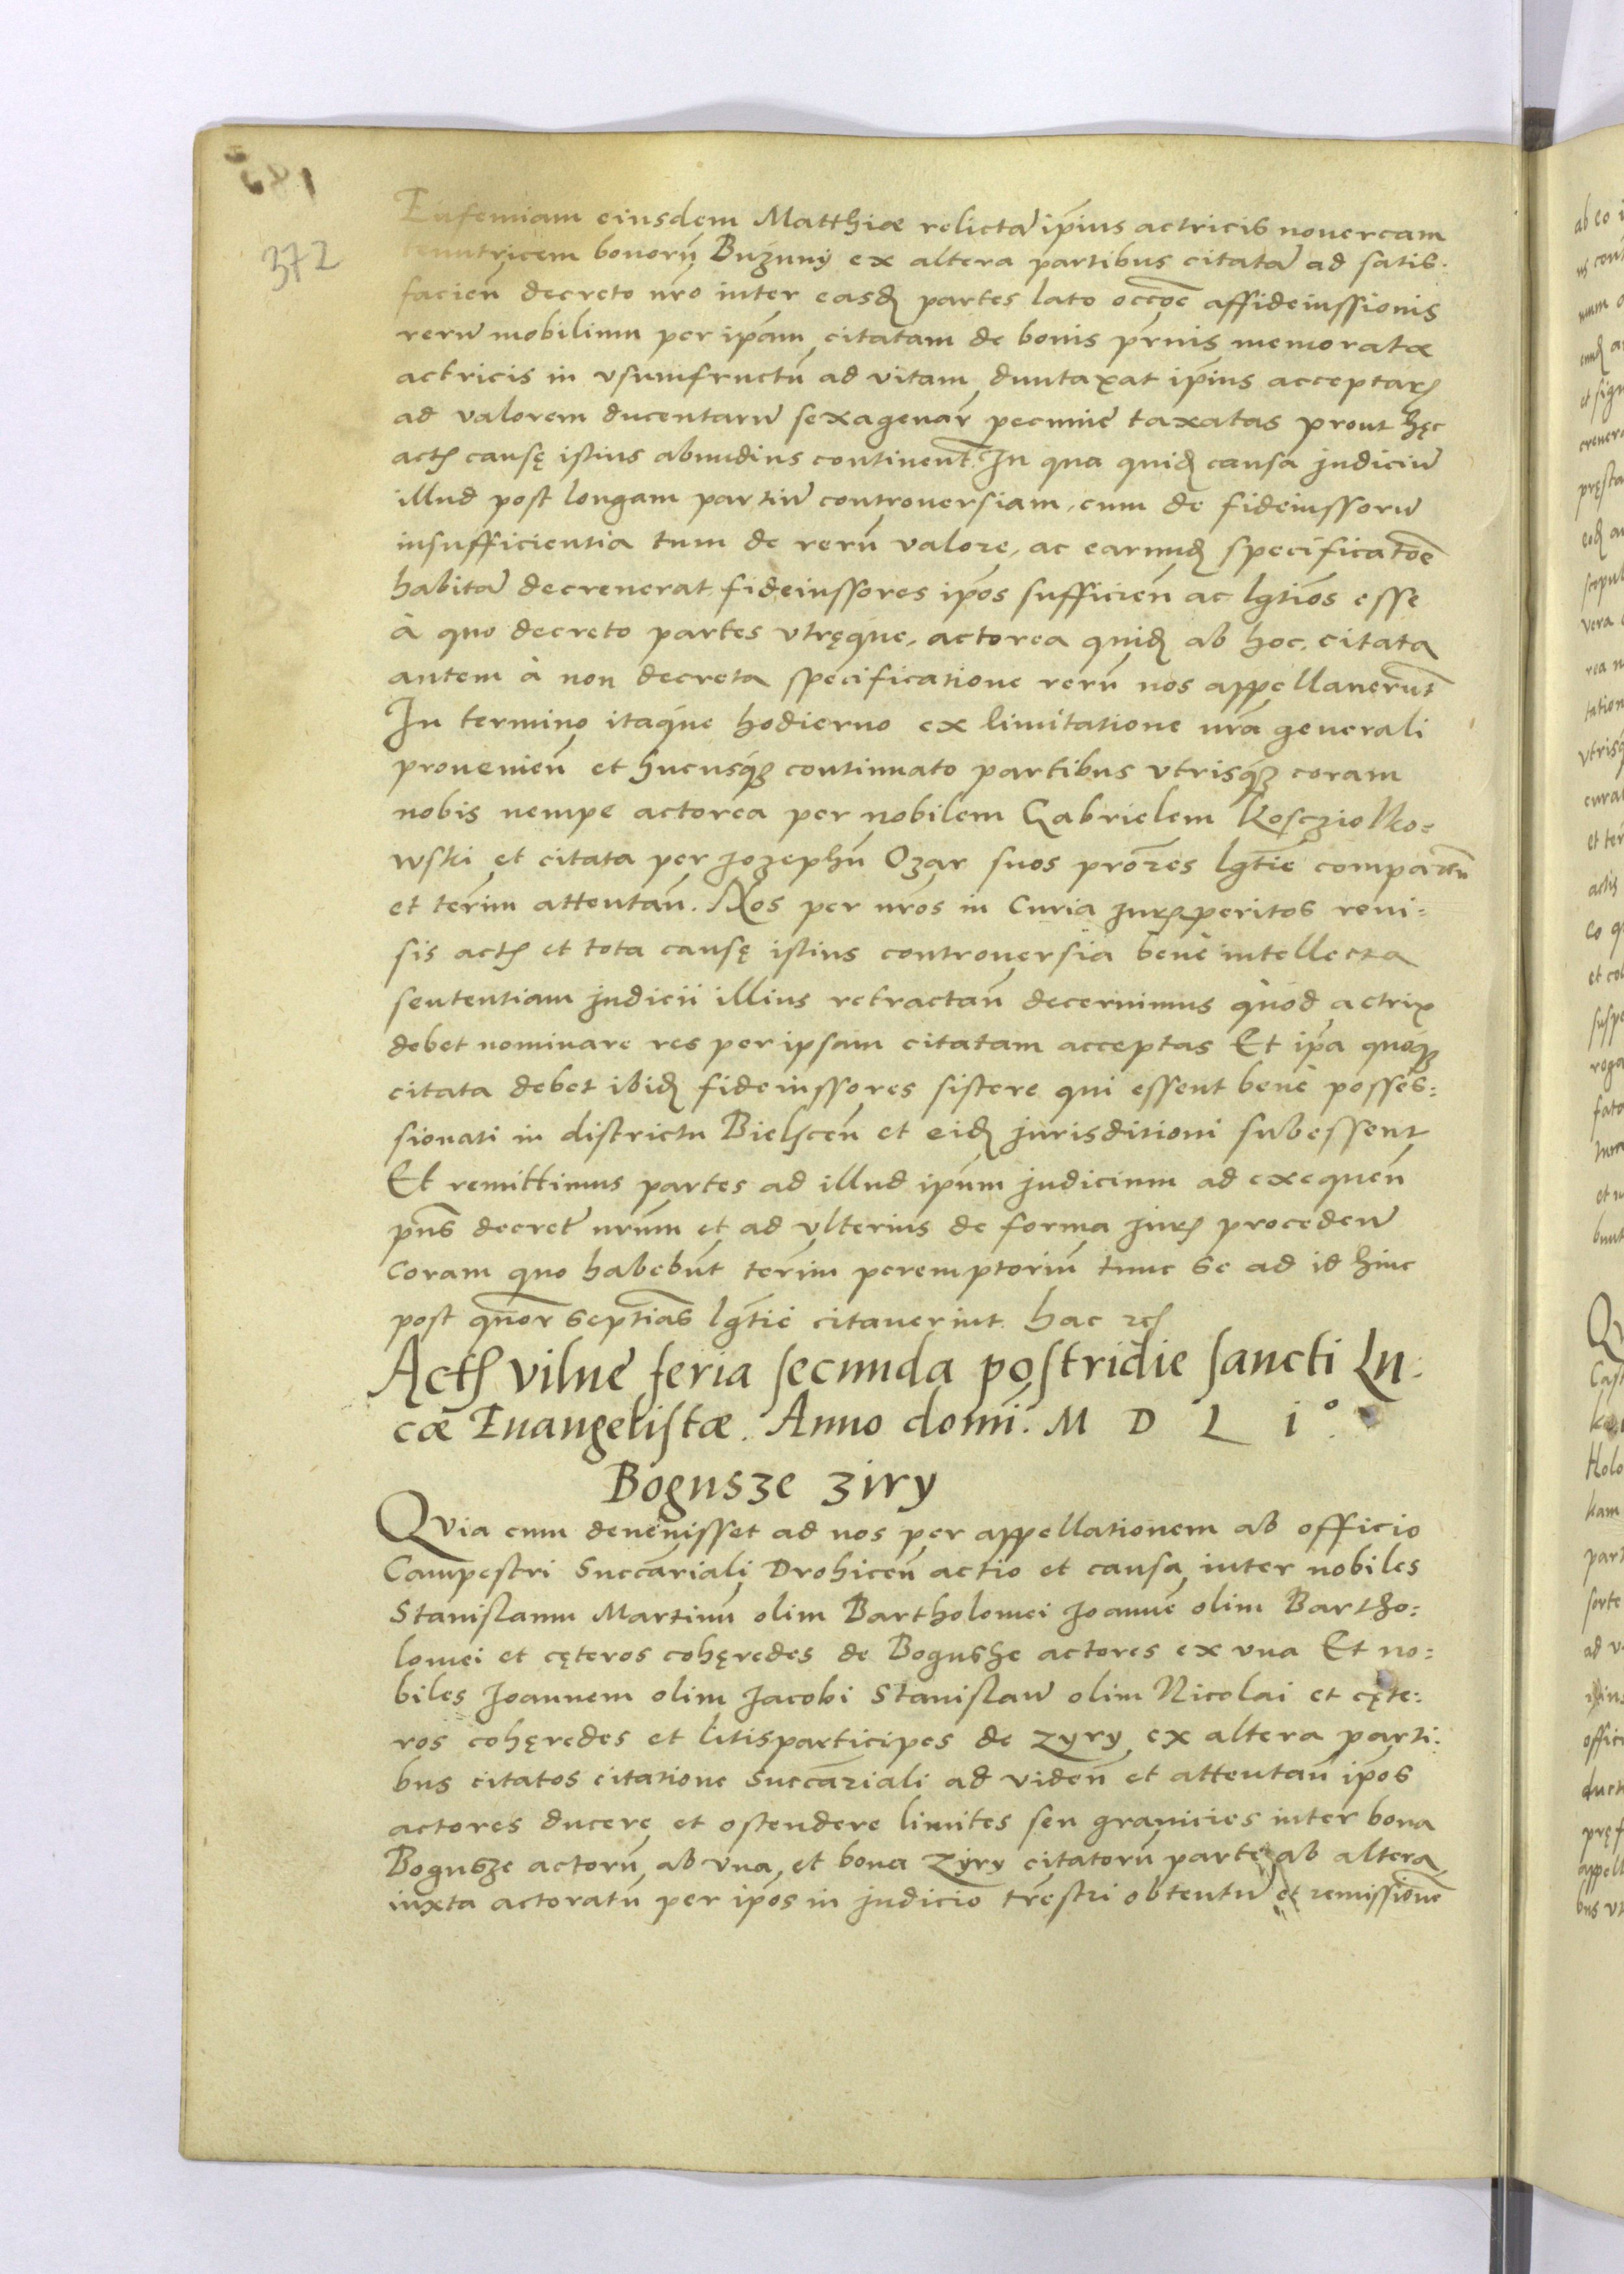 372
Eufemiam eiusdem Matthiæ relictā ip̄ius actricis nouercam
tenutricem bonorū Buzuny ex altera partibus citatā ad satis:
facien̄ decreto nr̄o inter easđ partes lato occōe affideiussionis
rerū mobilium per ip̄am citatam de bonis pr̄nis memoratæ
actricis in vsumfructū ad vitam duntaxat ip̄ius acceptarꝭ
ad valorem ducentarū sexagenar̄ pecuniē taxatas prout hęc
actꝭ causę istius abundius continent̄. In qua quiđ causa judiciū
illud post longam partiū controuersiam, cum de fideiussorū
insufficientia tum de rerū valore, ac earundđ specificatōe
habitā decreuerat fideiussores ip̄os sufficien̄ ac lgt̄ios esse
à quo decreto partes vtręque, actorea quiđ ab hoc, citata
autem à non decreta specificatione rerū nos appellauerūt
In termino itaque hodierno ex limitatione nrā generali
prouenien̄ et hucusqꝫ continuato partibus vtrisqꝫ coram
nobis nempe actorea per nobilem Gabrielem Koscziolko=
wski et citata per Jozephū Ozar suos prōres lgt̄ie comparēn
et term̄ attentan̄. Nos per nr̄os in Curia Jurꝭperitos reui=
sis actꝭ et tota causę istius controuersia bene intellecta
sententiam judicii illius retractan̄ decernimus quod actrix
debet nominare res per ipsam citatam acceptas Et ip̄a quoqꝫ
citata debet ibiđ fideiussores sistere qui essent bene posses=
sionati in districtu Bielscen̄ et eiđ jurisditioni subessent
Et remittimus partes ad illud ip̄um judicium ad exequen̄
pn̄s decret̄ nr̄um et ad vlterius de forma jurꝭ procedēn
coram quo habebūt term̄ peremptoriū tunc se ad id hinc
post qn̄or septīas lgt̄ie citauerint. hac rꝭ
Actꝭ vilnē feria secunda postridie sancti Lu:
cæ Euangelistæ. Anno domī. M D L i°.
Bogusze ziry
Quia cum deuenisset ad nos per appellationem ab officio
Campestri Succāriali Drohicen̄ actio et causa inter nobiles
Stanislaum Martinū olim Bartholomei Joannē olim Bartho=
lomei et cęteros cohęredes de Bogusze actores ex vna Et no=
biles Joannem olim Jacobi Stanislaū olim Nicolai et cęte=
ros cohęredes et litisparticipes de zyry ex altera parti:
bus citatos citatione Succāriali ad viden̄ et attentan̄ ip̄os
actores ducere et ostendere limites seu granicies inter bona
Bogusze actorū ab vna, et bona zyry citatorū parte ab altera
iuxta actoratū per ip̄os in judicio trēstri obtentū et remissionē